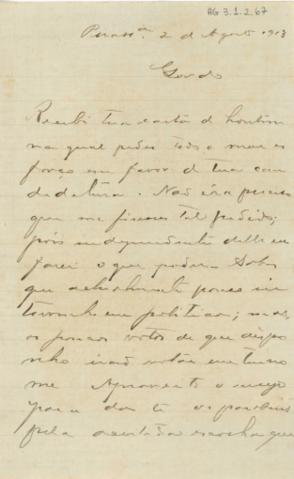 AG 3.1.2.67
2 de Agosto 1913
Gordo
Recebi tua carta d'hontem
na qual pedes todo o meu es
forço em favor de tua can
didatura. Não era preciso
que me fizesses tal pedido;
pois independente delle eu
farei o que puder. Sabes
que actualmente pouco in
em politica; mas,
os poucos votos de que dispo
nho irão votar em teu no
me. Aproveito o ensejo
para dar-te os parabens
pela acertada escolha que